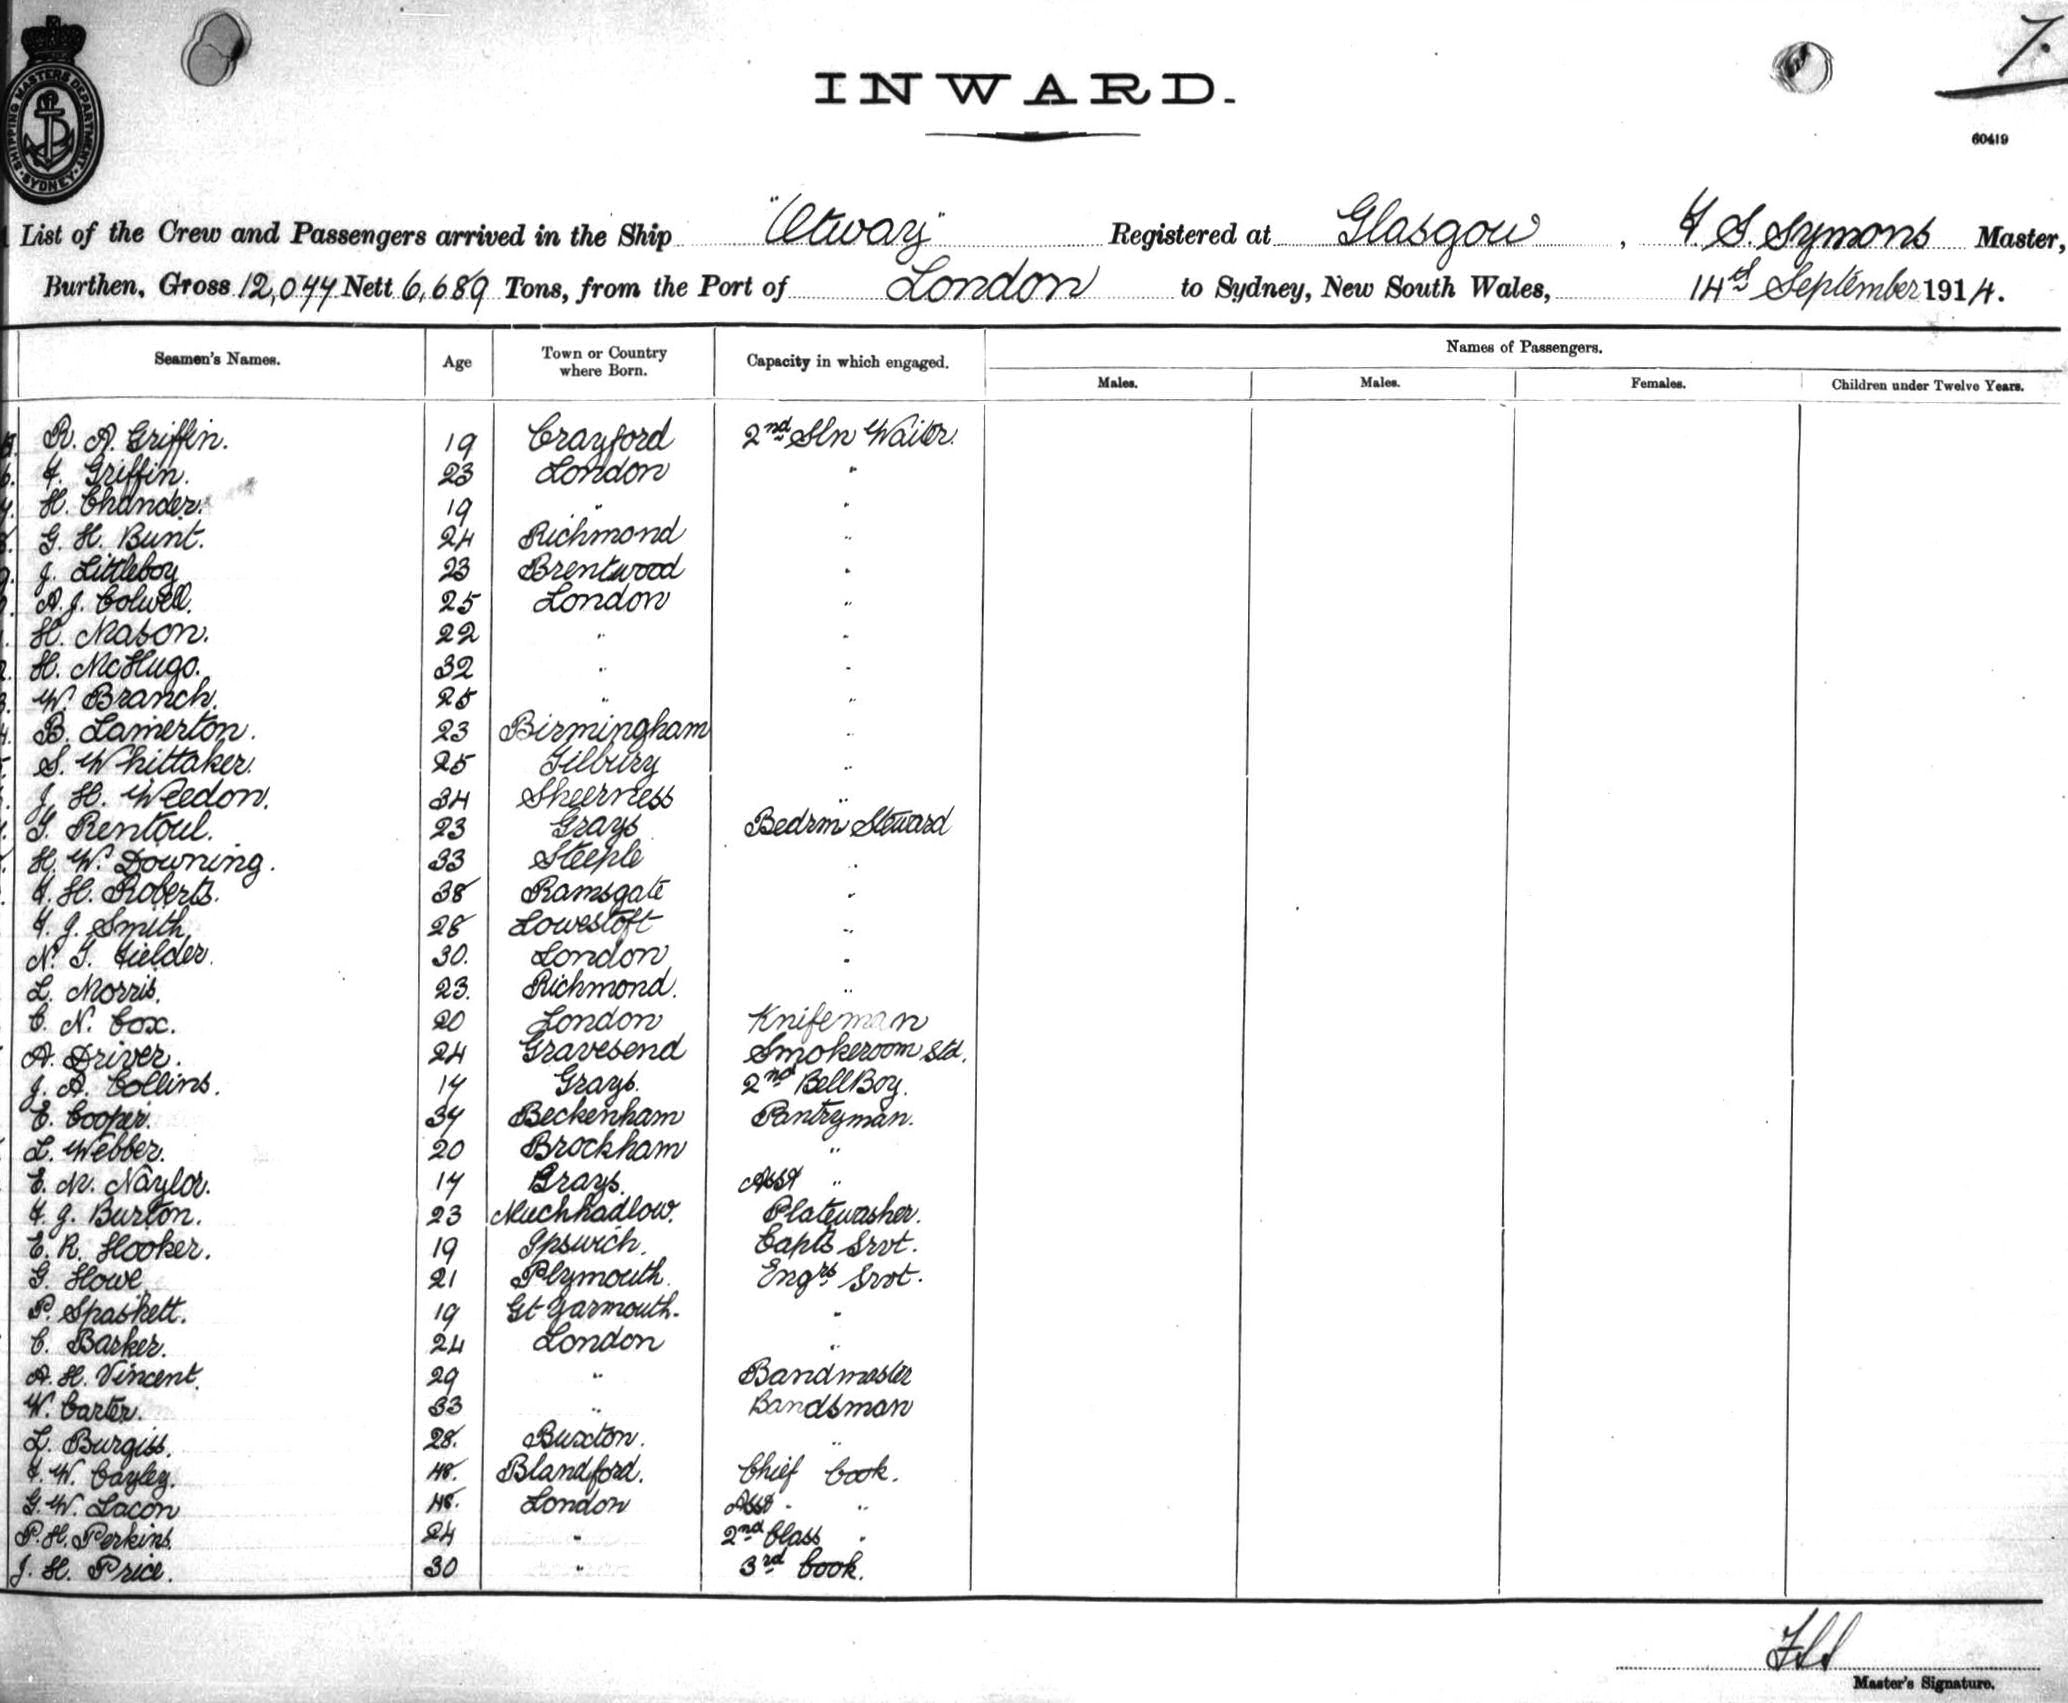 7.
INWARD.
SHIPPING MASTERS DEPARTMENT · SYDNEY ·
60419
List of the Crew and Passengers arrived in the Ship "Otway" Registered at Glasgow, F. S. Symons Master,
Burthen, Gross 12,077 Nett 6,689 Tons, from the Port of London to Sydney, New South Wales, 14th September 1914.
Seamen's Names. Age Town or Country where Born. Capacity in which engaged. Names of Passengers.
Males. Males. Females. Children under Twelve Years.
R. A. Griffin. 19 Crayford 2nd Sln Waiter.
F. Griffin. 23 London "
H. Chander. 19 " "
G. H. Bunt. 24 Richmond "
J. Littleboy 23 Brentwood "
A. J. Colwell. 25 London "
H. Mason. 22 " "
H. McHugo. 32 " "
W. Branch. 25 " "
B. Lamerton. 23 Birmingham "
S. Whittaker. 25 Tilbury "
J. H. Weedon. 34 Sheerness "
T. Rentoul. 23 Grays Bedrm Steward
H. W. Downing. 33 Steeple "
F. H. Roberts. 38 Ramsgate "
F. J. Smith. 28 Lowestoft "
N. T. Fielder. 30. London "
L. Morris. 23. Richmond. "
C. N. Cox. 20 London Knifeman
A. Driver. 24 Gravesend Smokeroom Std.
J. A. Collins. 17 Grays. 2nd Bell Boy.
E. Cooper. 37 Beckenham Pantryman.
L. Webber. 20 Brockham "
E. M. Naylor. 17 Grays. Asst "
F. J. Burton. 23 Muchhadlow. Platewasher.
E. R. Hooker. 19 Ipswich. Capts Srvt.
G. Howe 21 Plymouth. Engrs Srvt.
P. Spashett. 19 Gt Yarmouth. "
C. Barker. 24 London "
A. H. Vincent. 29 " Bandmaster
W. Carter. 33 " Bandsman
L. Burgiss. 28. Buxton. "
F. W. Cayley. 48. Blandford. Chief Cook.
G. W. Lacon 48. London Asst "
P. H. Perkins. 24 " 2nd Class "
J. H. Price. 30 " 3rd Cook.
Master's Signature.